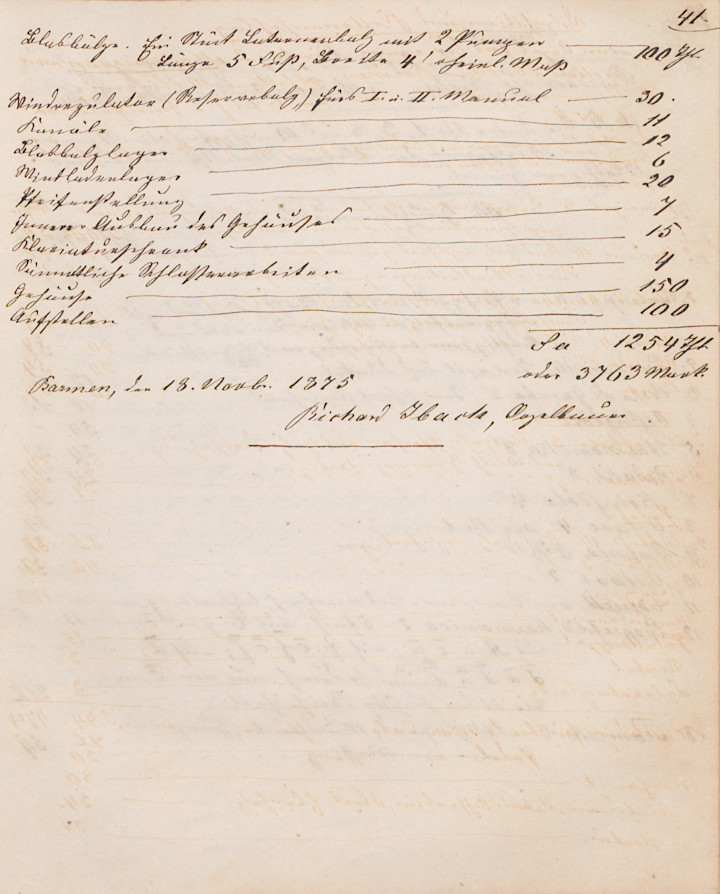 41.
Blasbälge. Ein Stück Laternenbalg mit 2 Pumpen
Länge 5 Fuß, Breite 4' rheinl. Maß 100 Thl
Windregulator (Reservebalg) fürs I. u. II. Manual 30.
Kanäle 11
Blasbalglager 12
Windladenlager 6
Pfeifenstellung 20
Innerer Ausbau des Gehäuses 7
Klaviaturschrank 15
Sämmtliche Schlosserarbeiten 4
Gehäuse 150
Aufstellen 100
Sa 1254 Thl.
oder 3763 Mark.
Barmen, den 18. Novb. 1875
Richard Ibach, Orgelbauer.